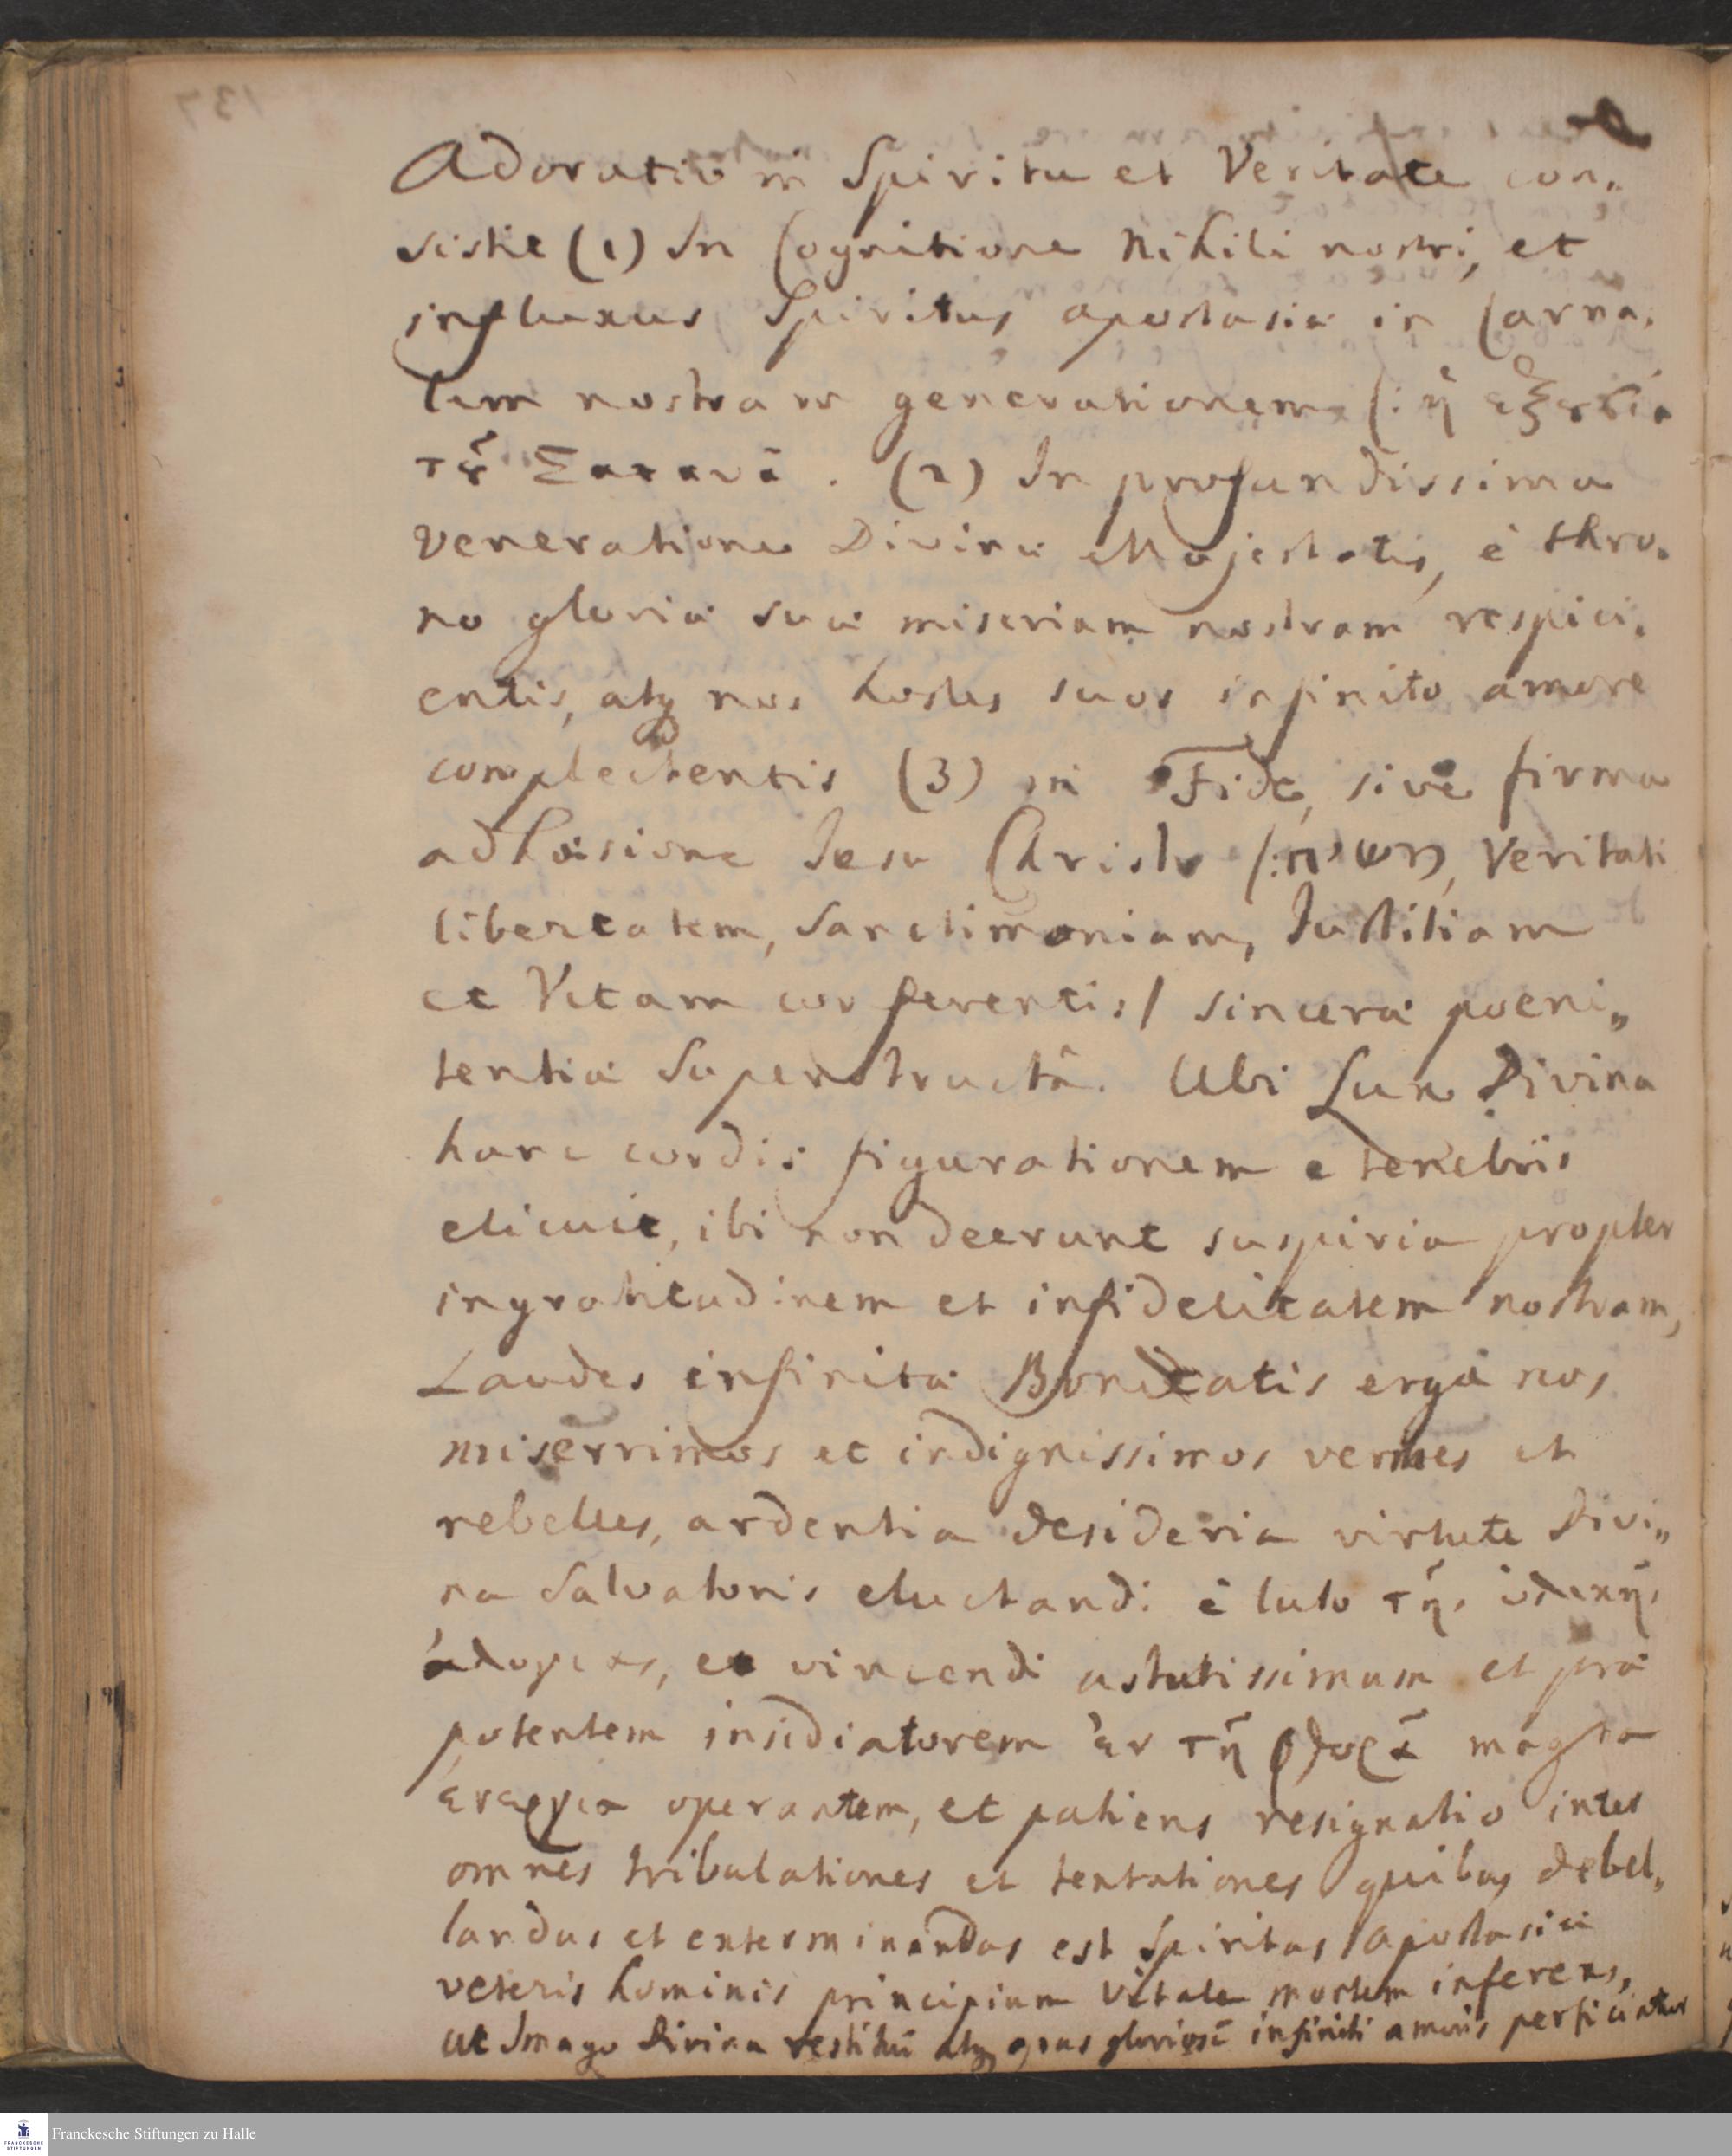 Adoratio in Spiritu et Veritate con„
sistit (1) In Cognitione Nihili nostri, et
influxus Spiritus apostasiæ in Carna„
lem nostram generationem (: ἡ ἐξουσία
τοῦ Σατανᾶ. (2) In profundissima
veneratione Divinæ Majestatis, è thro„
no gloriæ suæ miseriam nostram respici„
entis, atq nos hostes suos infinito amore
complectentis (3) in Fide, sive firma
adhæsione Jesu Christo /: משיח, Veritati
libertatem, Sanctimoniam, Justitiam
et Vitam conferentis/ sinceræ poeni„
tentiæ Superstructâ. Ubi Lux Divina
hanc cordis figurationem e tenebris
elicuit, ibi non deerunt suspiria propter
ingratitudinem et infidelitatem nostram,
Laudes infinitæ Bonitatis erga nos
miserrimos et indignissimos vermes et
rebelles, ardentia desideria virtute Divi„
na Salvatoris eluctandi è luto τῆς ὑλικῆς
ἀλογιας, et vincendi astutissimum et præ
potentem insidiatorem ἐν τῇ φθορᾷ magna
ενεργια operantem, et patiens resignatio inter
omnes tribulationes et tentationes quibus debel„
landus et exterminandus est Spiritus apostasiæ
veteris hominis principium Vitale mortem inferens,
ut Imago Divina restitui atq opus gloriosè infiniti amoris perficiatur
137
Franckesche Stiftungen zu Halle